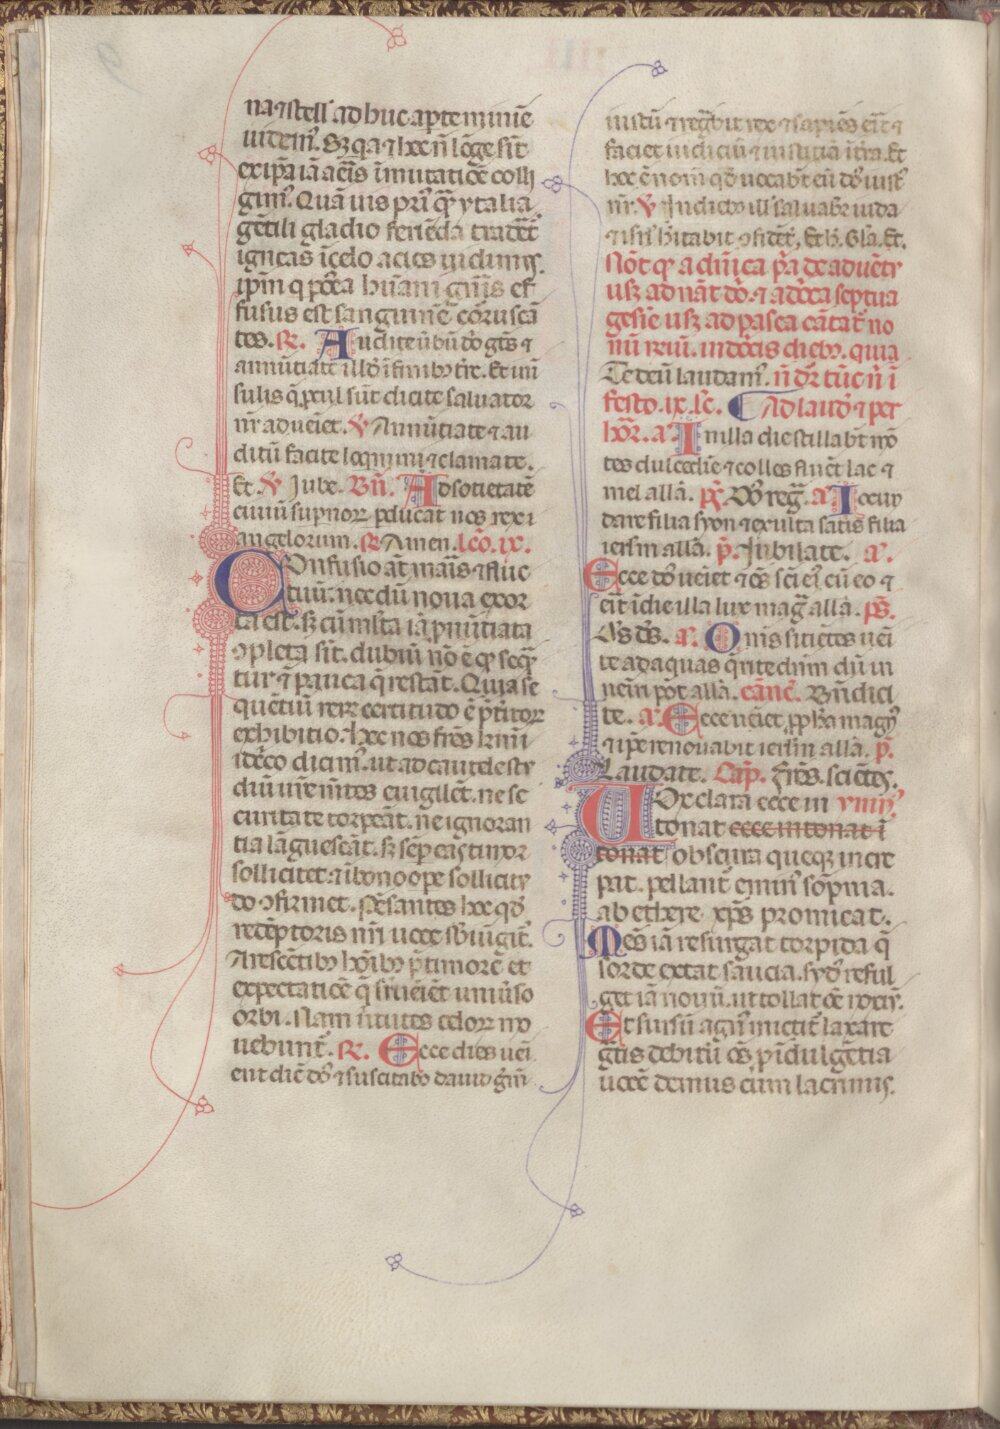 na ⁊ stell' adhuc apte minĩe
uidem᷒. Sꝫ q̃a ⁊ hec ñ lõge sĩt
ex ip̃a iã aeris ĩmutatiõe colli
gim᷒. Quã uis pri᷒ qꝫ ytalia
gẽtili gladio feriẽda tradet᷒
igneas ĩ celo acies uidim᷒.
ip̃m q̃ postea humani gñis ef
fusus est sanguinẽ corusca
tes. R̃. Audite ũbũ dñi gẽtes ⁊
annũtiate illd̃ ĩ finib᷒ tr̃e. Et ĩ in
sulis q̃ ꝓcul sũt dicite saluator
nr̃ adueniet. ℣ Annũtiate ⁊ au
ditũ facite loquimini ⁊ clamate.
Et. ℣ Iube. Bñ. Ad societatẽ
ciuiũ supnoꝝ pducat nos rex
angelorum. R̃ Amen. lcõ. ix.
Confusio aũt maris ⁊ fluc
tuũ. nec dũ noua exor
ta est. sꝫ cũ multa iã p̃nũtiata
ɔpleta sĩt. dubiũ nõ ẽ qꝫ seq̃
tur ⁊ pauca q̃ restãt. Quia se
quẽtiũ reꝝ certitudo ẽ p̃teritoꝝ
exhibitio. Hec nos fr̃es kr̃mi
idcirco dicim᷒. ut ad cautele stu
diũ ur̃e mẽtes euigilẽt. ne se
curitate torpeãt. ne ignoran
tia lãgueseãt. sꝫ semp eas timor
sollicitet. ⁊ ĩ bono ope sollicitu
do ɔfirmet. Pẽsantes hec qd̃
redẽptoris nr̃i uoce sb̃iũgit᷒.
Arescẽtib᷒ hoĩb᷒ p̃ timorẽ et
expectatiõe q̃ supueniẽt uniũso
orbi. Nam ũtutes celoꝝ mo
uebunt᷒. R̃. Ecce dies ueni
ent dic̃ dñs ⁊ suscitabo dauid germẽ
iustũ ⁊ regñbit rex ⁊ sapiẽs erit ⁊
faciet iudiciũ ⁊ iustitiã ĩ tr̃a. Et
hoc ẽ nom̃ qd̃ uocabũt eũ dñs iust᷒
nr̃. ℣ In dieb᷒ ill' saluabr̃ iuda
⁊ isr̃l h̃itabit ɔfidẽt᷒. Et h. Gla. Et.
Nõt qꝫ a dñica p̃a de aduẽtu
usꝫ ad nãt dñi. ⁊ adñica septua
gesie usꝫ ad pasca cãtat᷒ no
nũ reiũ. in dñicis dieb᷒. quia
Te deũ laudam᷒. ñ dr̃ tũc ñ ĩ
festo. ix. lc̃. Ad laud᷒ ⁊ per
hor̃. a᷒. In illa die stillabũt mõ
tes dulcedinẽ ⁊ colles fluẽt lac ⁊
mel alla. p̃s. Dñs reg̃. a᷒ Iocun
dare filia syon ⁊ exulta satis filia
ierl̃m alla. p̃. Jubilate. a᷒.
Ecce dñs ueniet ⁊ oẽs sc̃i ei᷒ cũ eo ⁊
erit ĩ die illa lux mag̃ alla. p̃s.
Ds ds. a᷒. Om̃s sitiẽtes ueni
te ad aquas q̃rite dnm dũ in
ueniri pot̃ alla. cãnc̃. Bñdici
te. a᷒. Ecce ueniet ꝓph̃a magn᷒
⁊ ip̃e renouabit ierl̃m alla. p̃.
Laudate. Cap̃. Fr̃es. sciẽtes.
Uox clara ecce in ymn᷒.
tonat ecce intonat ĩ
tonat obscura queqꝫ incre
pat. pellant᷒ emin᷒ sõpnia.
ab ethere xp̃s promicat.
Mẽs iã resurgat torpida q̃
sorde extat saucia. syd᷒ reful
get iã nouũ. ut tollat oẽ noxiũ.
Et sursũ agn᷒ mictit᷒ laxare
gr̃tis debitũ oẽs p̃ ĩdulgẽtia
uocẽ demus cum lacrimis.